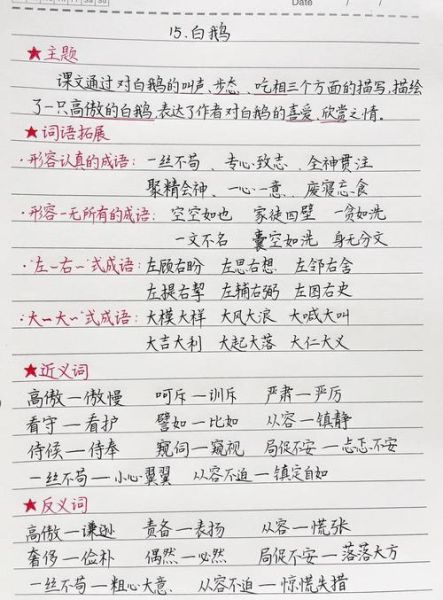 Date
15.白鹅
★主题
课文通过对白鹅的叫声、步态、吃相三个方面的描写,描绘
了一只高傲的白鹅,表达了作者对白鹅的喜爱、欣赏之情。
★词语拓展
·形容认真的成语:一丝不苟、专心致志、全神贯注
聚精会神、一心一意、废寝忘食
·形容一无所有的成语:空空如也 家徒四壁 一贫如洗
一文不名 囊空如洗 身无分文
·"左一右一"式成语:左顾右盼 左思右想 左邻右舍
左提右挈 左辅右弼 左图右史
·大一大一式成语:大模大样 大风大浪 大喊大叫
大吉大利 大起大落 大仁大义
★近义词
高傲—傲慢 呵斥—训斥 严肃—严厉
看守—看护 譬如—比如 从容—镇静
侍候—侍奉 窥伺—窥视 局促不安—忐忑不安
一丝不苟—小心翼翼 从容不迫—镇定自如
★反义词
高傲—谦逊 责备—表扬 从容—慌张
奢侈—俭朴 偶然—必然 局促不安—落落大方
一丝不苟—粗心大意. 从容不迫—惊慌失措